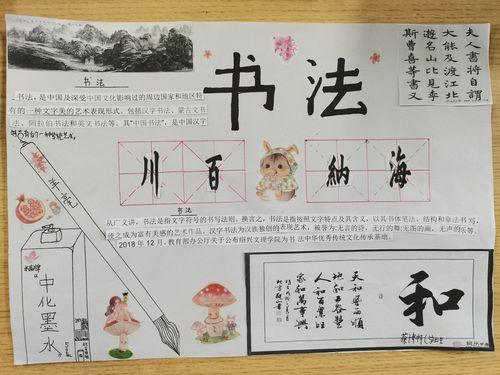 书法
书法
书法，是中国及深受中国文化影响过的周边国家和地区特
有的一种文字美的艺术表现形式，包括汉字书法、蒙古文书
法、阿拉伯书法和英文书法等。其"中国书法"，是中国汉字
特有的一种传统艺术。
夫人書将自謂
大能及渡江北
遊名山比見李
斯曹喜等書又
川百納海
书法
从广义讲，书法是指文字符号的书写法则。换言之，书法是指按照文字特点及其含义，以其书体笔法、结构和章法书写，
使之成为富有美感的艺术作品。汉字书法为汉族独创的表现艺术，被誉为:无言的诗，无行的舞;无图的画，无声的乐等。
2018年12月，教育部办公厅关于公布绍兴文理学院为书法中华优秀传统文化传承基地。
羊毫
中化墨水
和
天和風雨順
地和五谷豐
人和百業旺
家和萬事興